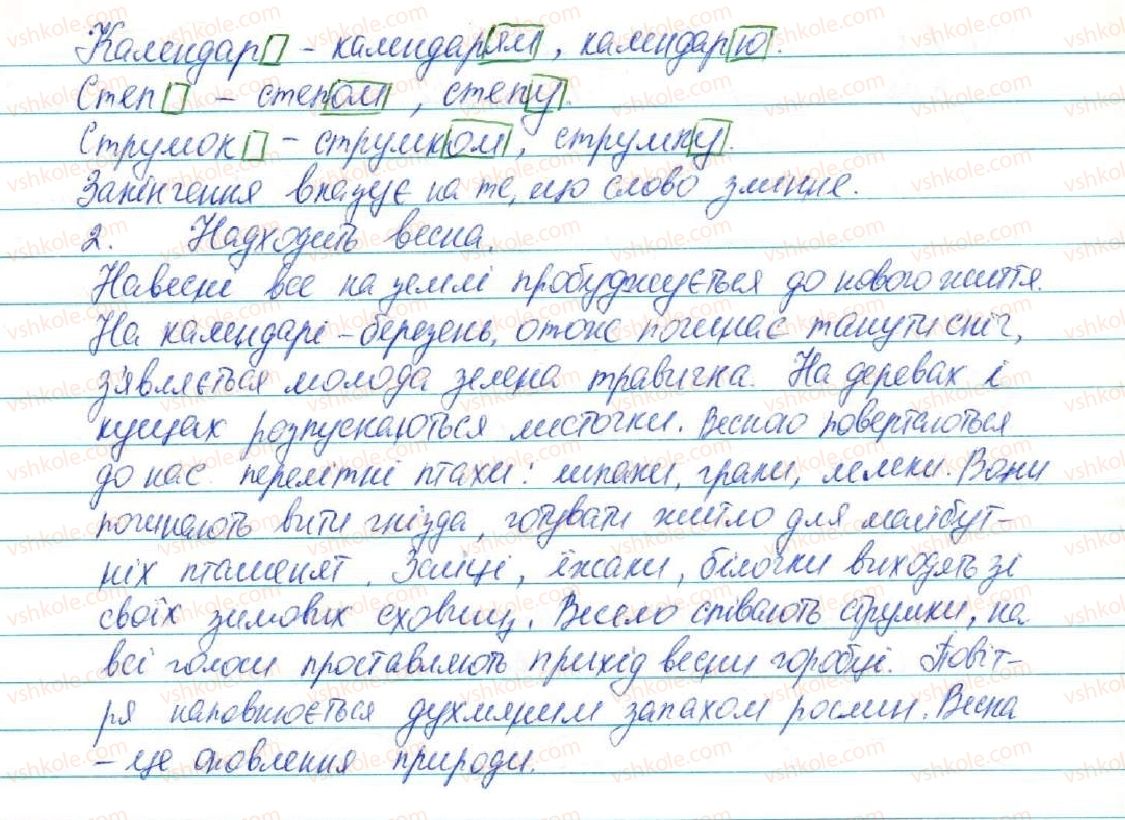 Календар - календарям, календарю.
Степ - степом, степу.
Струмок - струмком, струмку.
Закінчення вказує на те, що слово змінне.
2. Надходить весна.
Навесні все на землі пробуджується до нового життя.
На календарі - березень, отож починає танути сніг,
з'являється молода зелена травичка. На деревах і
кущах розпускаються листочки. Весною повертаються
до нас перелітні птахи: шпаки, граки, лелеки. Вони
починають вити гнізда, готувати житло для майбут-
ніх пташенят. Зайці, їжаки, білочки виходять зі
своїх зимових сховищ. Весело співають струмки, на
всі голоси проставляють прихід весни горобці. Повіт-
ря наповнюється духмяним запахом рослин. Весна
- це оновлення природи.
vshkole.com